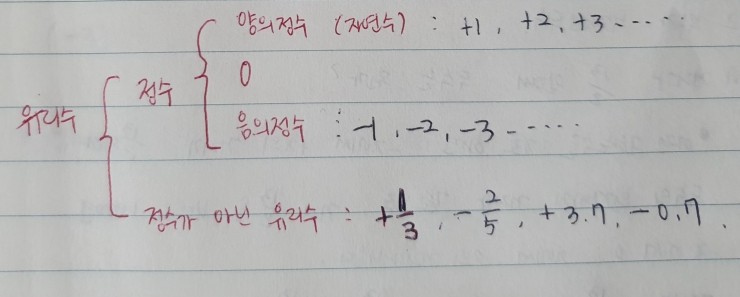 양의정수 (자연수) : +1, +2, +3 -----
정수 0
유리수 음의정수 : -1, -2, -3 -----
정수가 아닌 유리수 : +1/3, -2/5, +3.7, -0.7.